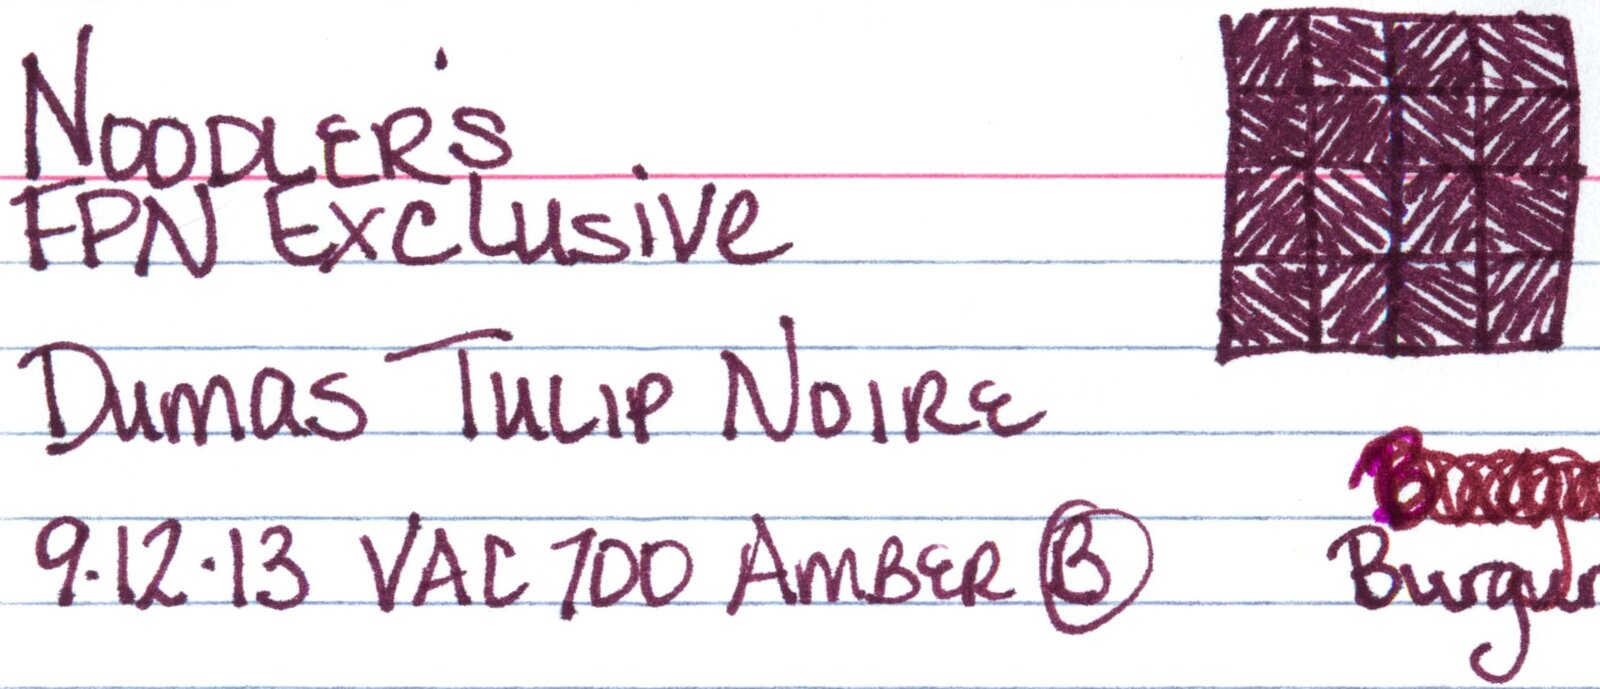 Noodler's
FPN Exclusive
Dumas Tulip Noire
9.12.13 VAC 700 Amber B